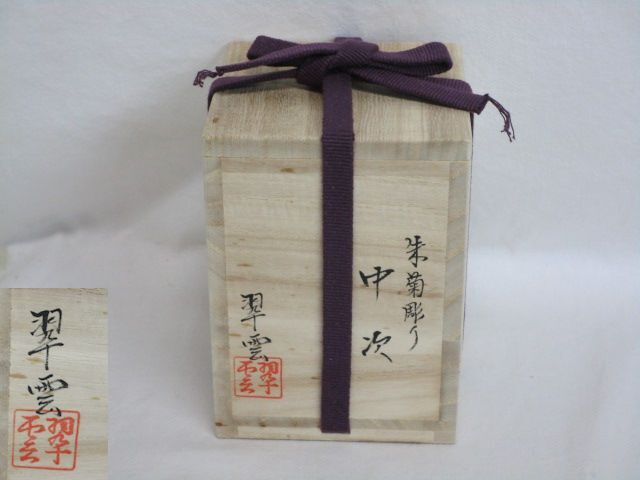 朱菊彫り
中次
翠雲
翠雲